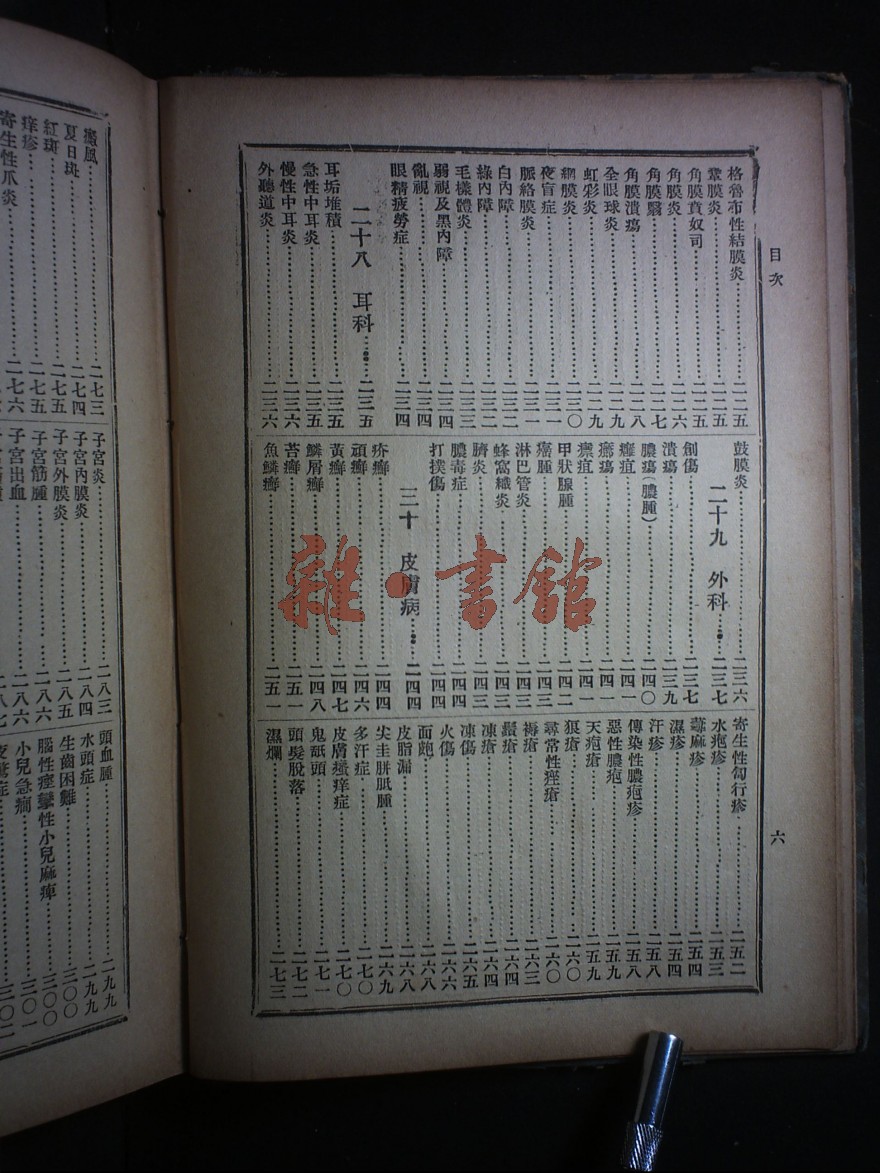 目次
六
格魯布性結膜炎 二二五
鞏膜炎 二二五
角膜賁奴司 二二五
角膜炎 二二六
角膜翳 二二七
角膜潰瘍 二二八
全眼球炎 二二九
虹彩炎 二二九
網膜炎 二三〇
夜盲症 二三一
脈絡膜炎 二三一
白內障 二三二
綠內障 二三二
毛樣體炎 二三三
弱視及黑內障 二三四
亂視 二三四
眼精疲勞症 二三四
二十八 耳科 二三五
耳垢堆積 二三五
急性中耳炎 二三五
慢性中耳炎 二三六
外聽道炎 二三六
鼓膜炎 二三六
二十九 外科 二三七
創傷 二三七
潰瘍 二三九
膿瘍(膿腫) 二四〇
癰疽 二四一
瘭疽 二四一
甲狀腺腫 二四二
癌腫 二四三
淋巴管炎 二四三
蜂窩織炎 二四三
臍炎 二四三
膿毒症 二四四
打撲傷 二四四
三十 皮膚病 二四四
疥癬 二四四
頑癬 二四六
黃癬 二四七
鱗屑癬 二四八
苔癬 二五一
魚鱗癬 二五一
寄生性匐行疹 二五二
水疱疹 二五三
蕁麻疹 二五四
濕疹 二五四
汗疹 二五八
傳染性膿疱疹 二五八
惡性膿疱 二五九
天疱瘡 二五九
狼瘡 二六〇
尋常性痤瘡 二六〇
褥瘡 二六三
鬚瘡 二六四
凍瘡 二六四
凍傷 二六五
火傷 二六六
面皰 二六八
皮脂漏 二六八
尖圭胼胝腫 二六九
多汗症 二七〇
皮膚瘙痒症 二七〇
鬼舐頭 二七一
頭髮脫落 二七二
濕爛 二七三
癜風 二七三
夏日斑 二七四
紅斑 二七五
痒疹 二七五
寄生性爪炎 二七六
子宮炎 二八三
子宮內膜炎 二八四
子宮外膜炎 二八五
子宮筋腫 二八六
子宮出血 二八六
二八七
頭血腫 二九九
水頭症 二九九
生齒困難 三〇〇
腦性痙攣性小兒麻痺 三〇〇
小兒急癇 三〇一
夜驚症 三〇二
雜·書館